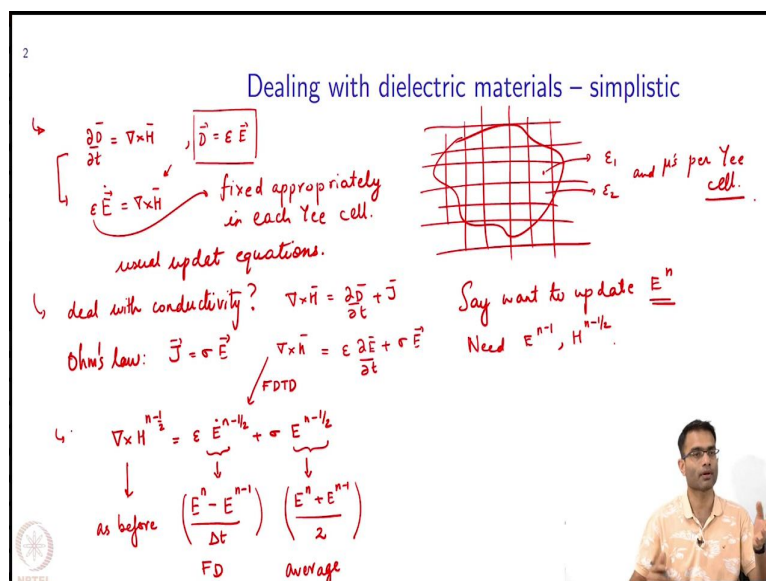 2
Dealing with dielectric materials – simplistic
↳ ∂D̄/∂t = ∇×H̄ , D⃗ = ε E⃗
↳ ε Ė⃗ = ∇×H̄ → fixed appropriately
in each Yee cell.
usual updat equations.
→ ε₁
→ ε₂
and μ's per Yee
cell.
↳ deal with conductivity? ∇×H̄ = ∂D̄/∂t + J̄
Ohm's law: J⃗ = σ E⃗ ∇×H̄ = ε ∂Ē/∂t + σ E⃗
FDTD
Say want to update Eⁿ
Need Eⁿ⁻¹, Hⁿ⁻¹/².
↳ ∇×H^{n-1/2} = ε Ė^{n-1/2} + σ E^{n-1/2}
as before ((Eⁿ − Eⁿ⁻¹)/Δt) ((Eⁿ + Eⁿ⁻¹)/2)
FD average
NPTEL